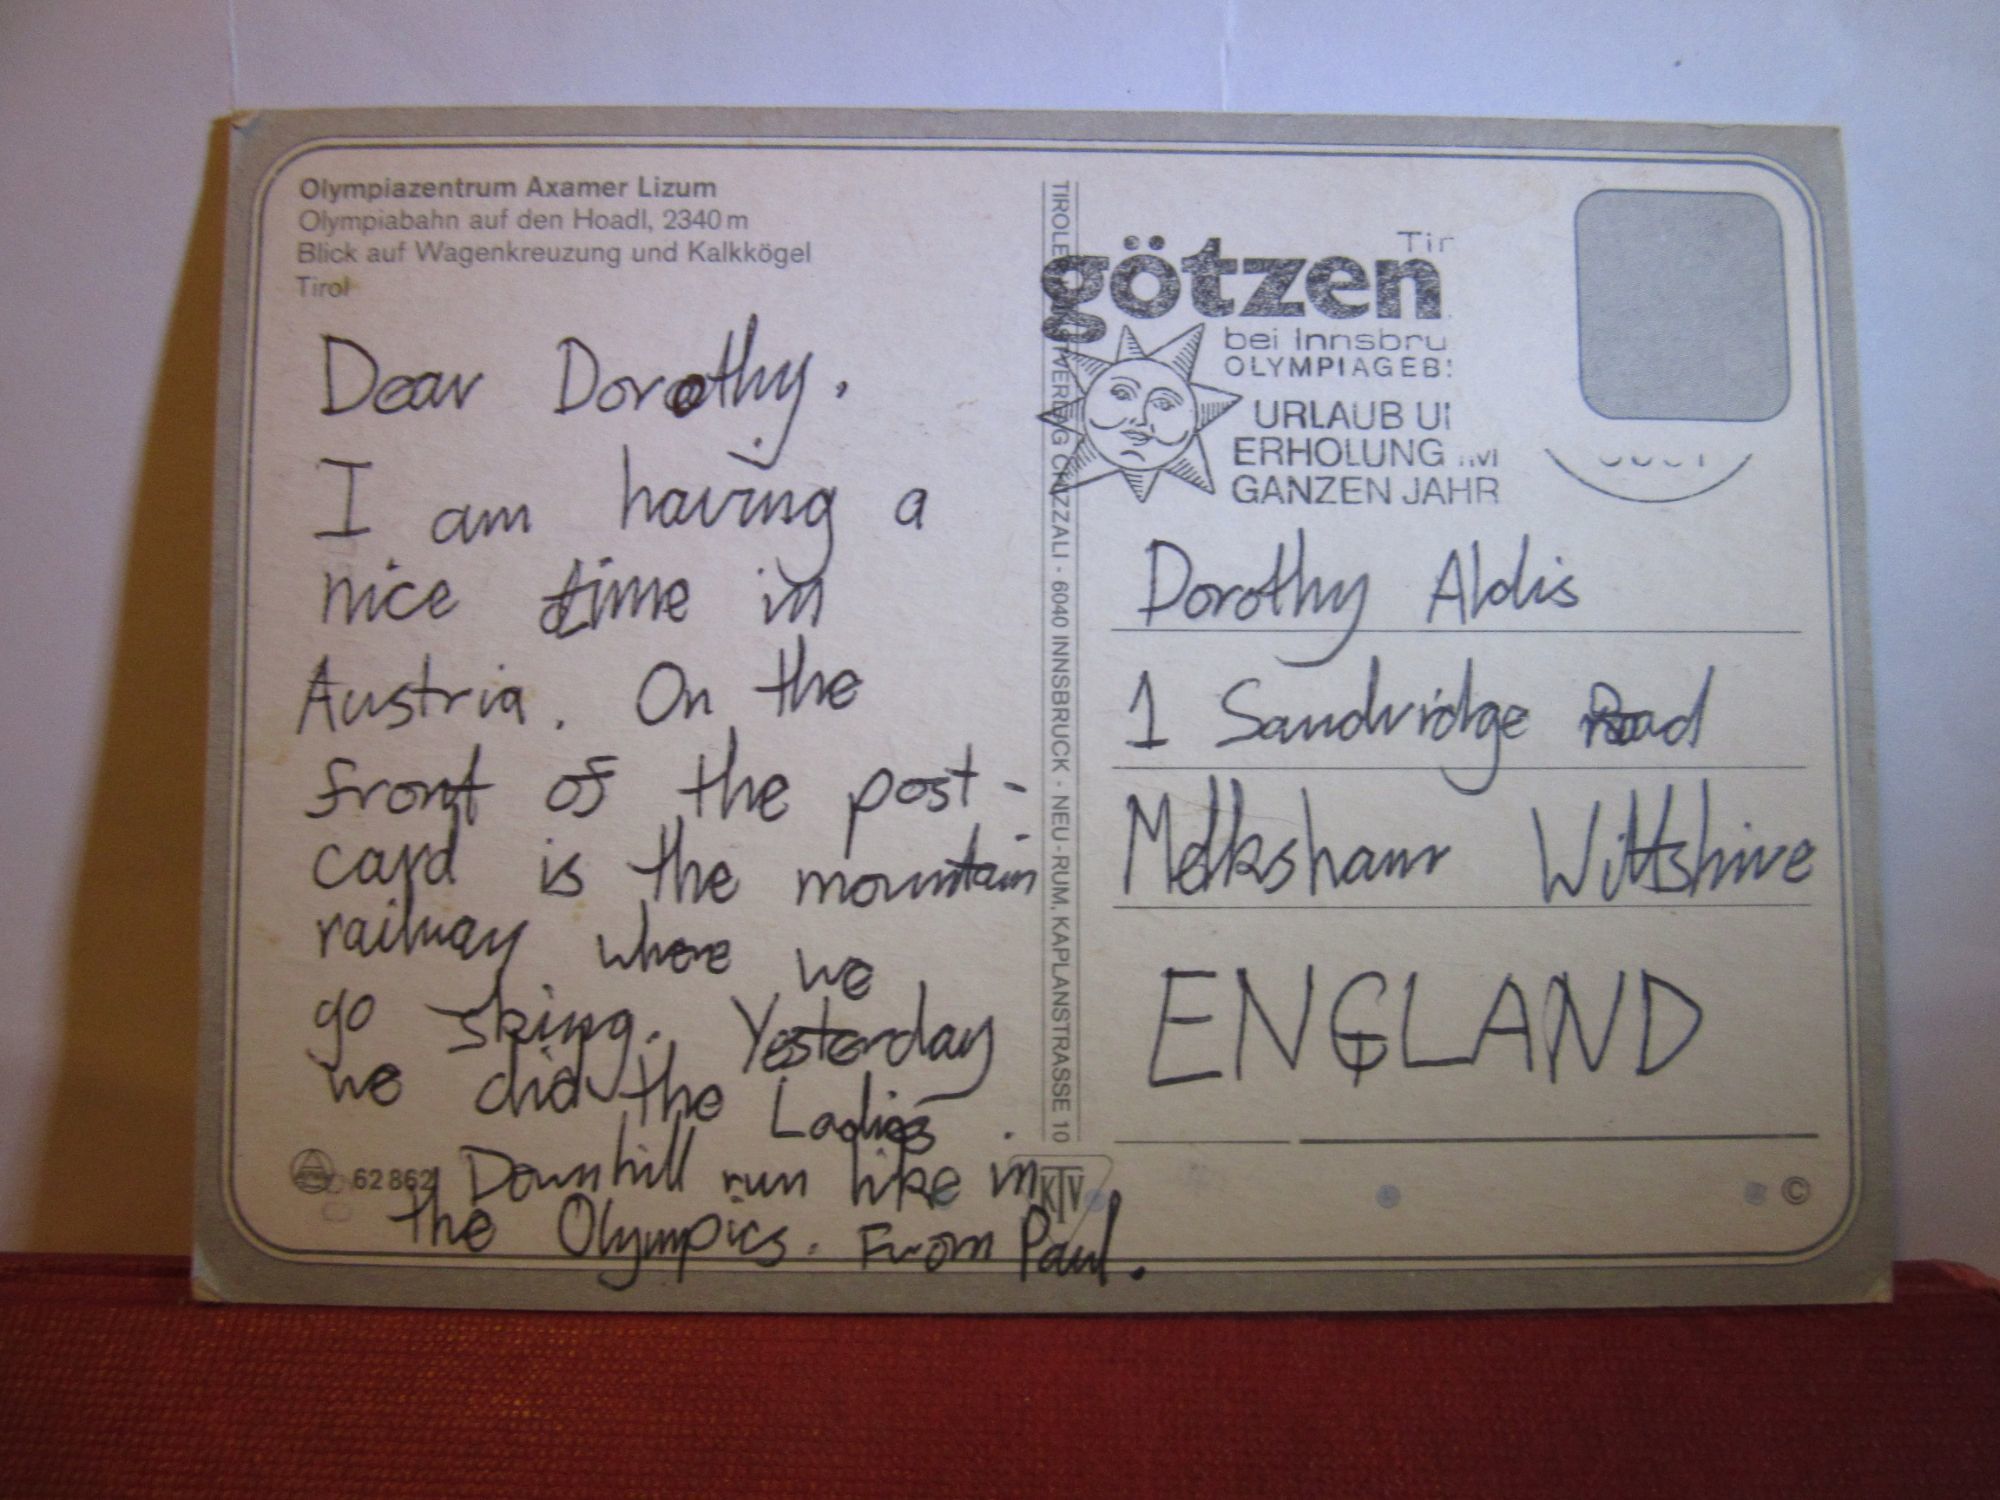 Olympiazentrum Axamer Lizum
Olympiabahn auf den Hoadl, 2340 m
Blick auf Wagenkreuzung und Kalkkögel
Tirol
Dear Dorothy,
I am having a
nice time in
Austria. On the
front of the post-
card is the mountain
railway where we
go skiing. Yesterday
we did the Ladies
Downhill run like in
the Olympics. From Paul.
62 862
TIROLER KUNSTVERLAG CHIZZALI · 6040 INNSBRUCK - NEU-RUM, KAPLANSTRASSE 10
Tir
götzen
bei Innsbru
OLYMPIAGEB
URLAUB U
ERHOLUNG IM
GANZEN JAHR
Dorothy Aldis
1 Sandridge Road
Melksham Wiltshire
ENGLAND
KTV
©